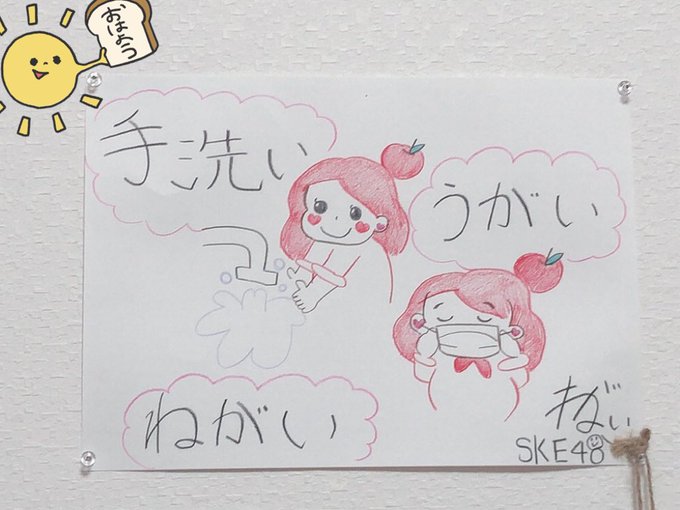 おはよう
手洗い
うがい
ねがい
SKE48